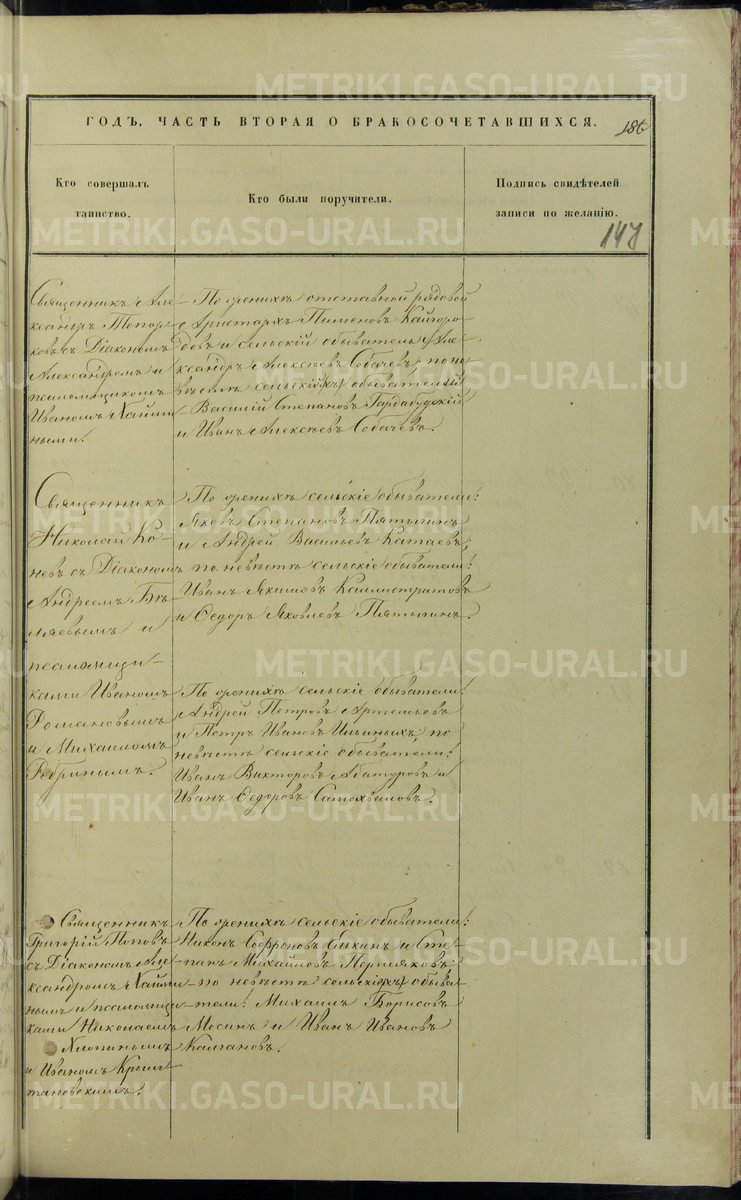 ГОДЪ, ЧАСТЬ ВТОРАЯ О БРАКОСОЧЕТАВШИХСЯ.
186
Кто совершалъ
таинство.
Кто были поручители.
Подпись свидѣтелей
записи по желанію.
147
Священникъ Але-
ксандръ Топор-
ковъ съ Діакономъ
Александромъ и
псаломщикомъ
Иваномъ Хлыни-
ными.
По женихѣ отставной рядовой
Аристархъ Пименовъ Кайгоро-
довъ и сельскій обыватель Але-
ксандръ Алексѣевъ Собачевъ; по не-
вѣстѣ сельскій обыватели
Василій Степановъ
и Иванъ Алексѣевъ Собачевъ.
Священникъ
Николай Ко-
невъ съ Діакономъ
Андреемъ Бѣ-
ляевымъ и
псаломщи-
ками Иваномъ
Романовымъ
и Михаиломъ
Ребринымъ.
По женихѣ сельскіе обыватели:
Яковъ Степановъ Пятыгинъ
и Андрей Васильевъ Катаевъ;
по невѣстѣ сельскіе обыватели:
Иванъ Якимовъ Каллистратовъ
и Ѳедоръ Яковлевъ Пятыгинъ.
По женихѣ сельскіе обыватели:
Андрей Петровъ Артемьевъ
и Петръ Ивановъ Ильиныхъ, по
невѣстѣ сельскіе обыватели:
Иванъ Викторовъ Абатуровъ и
Иванъ Ѳедоровъ Самохваловъ.
Священникъ
Григорій Поповъ
съ Діакономъ Але-
ксандромъ Хлыни-
нымъ и псаломщи-
ками Николаемъ
Хлопинымъ
и Иваномъ Криш-
тановскимъ.
По женихѣ сельскіе обыватели:
Никонъ Софроновъ Быкинъ и Сте-
панъ Михайловъ Пермяковъ;
по невѣстѣ сельскіе обыва-
тели: Михаилъ Борисовъ
Мосинъ и Иванъ Ивановъ
Калгановъ.
METRIKI.GASO-URAL.RU